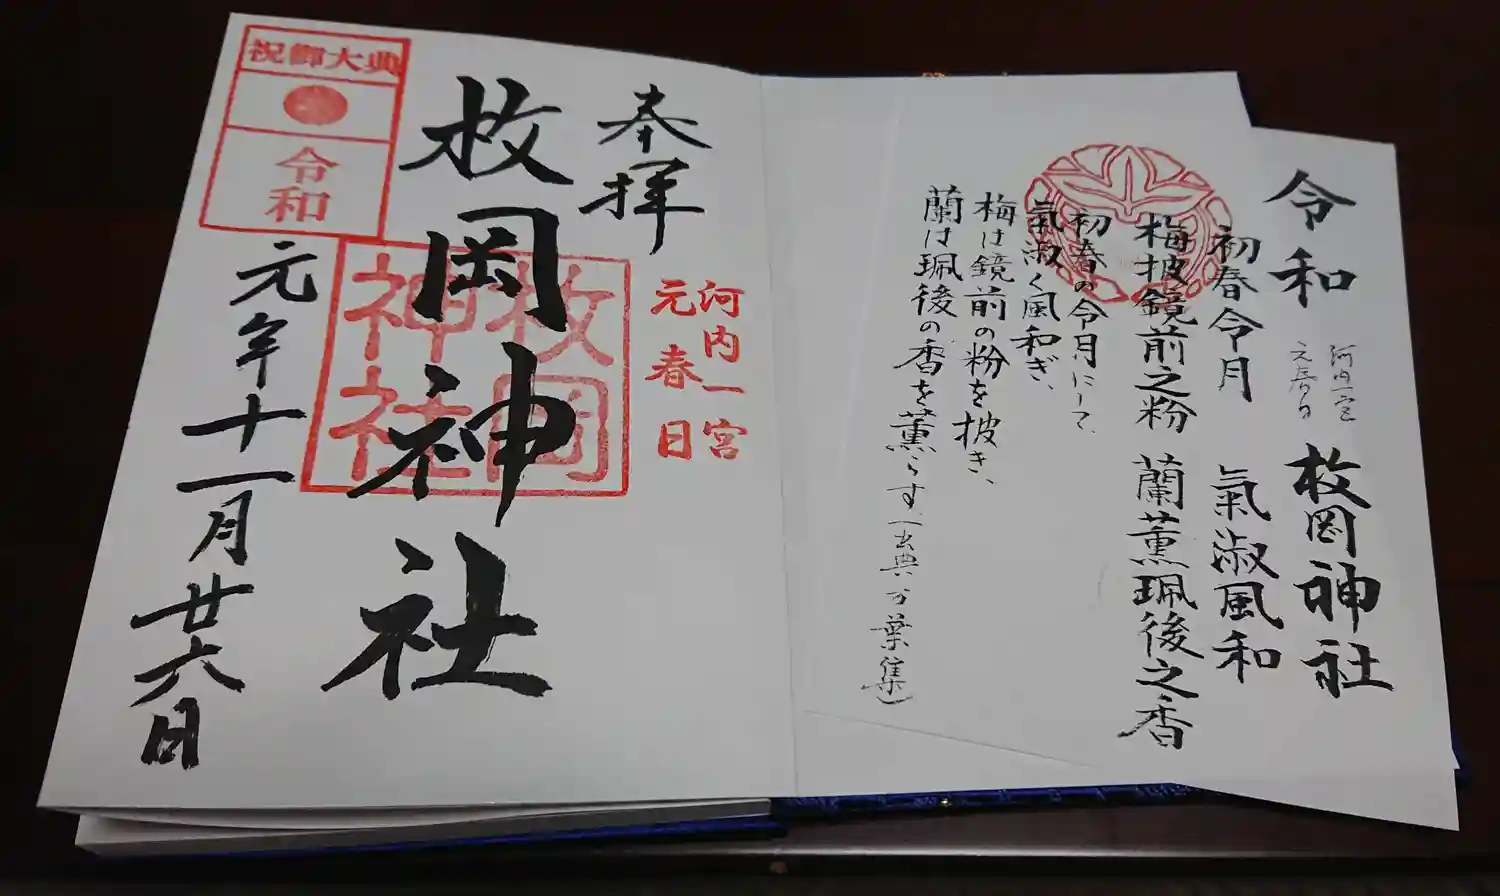 令和
河内一宮
元春日
枚岡神社
初春令月 氣淑風和
梅披鏡前之粉 蘭薫珮後之香
初春の令月にして、
氣淑く風和ぎ、
梅は鏡前の粉を披き、
蘭は珮後の香を薫らす。(出典:万葉集)
奉拝
河内一宮
元春日
枚岡神社
枚岡
神社
祝御大典
令和
元年十一月廿六日